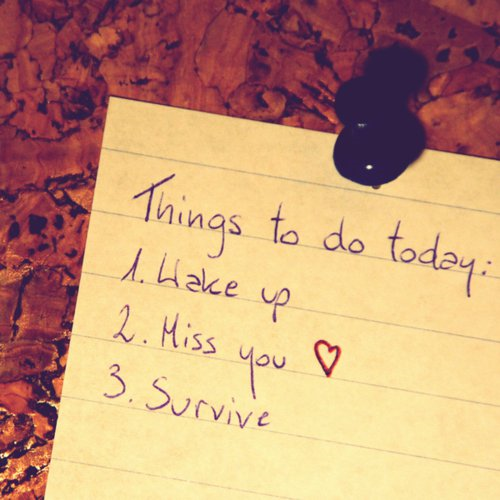 Things to do today:
1. Wake up
2. Miss you ♡
3. Survive